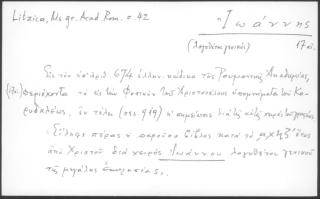 Litzica, Ms. gr. Acad. Rom. σ. 42
Ἰωάννης
(λογοθέτης γενικός) 17 αἰ.
Εἰς τὸν ὑπ' ἀριθ. 674 ἑλλην. κώδικα τῆς Ρουμανικῆς Ἀκαδημίας,
περιέχοντα τὰ εἰς τὴν Φυσικὴν τοῦ Ἀριστοτέλους ὑπομνήματα τοῦ Κο-
ρυδαλέως, ἐν τέλει (σελ. 919) ἡ σημείωσις διὰ τῆς αὐτῆς χειρὸς τοῦ γραφέως
Εἴληφε πέρας ἡ παροῦσα βίβλος κατὰ τὸ αχξζ' ἔτος
ἀπὸ Χριστοῦ διὰ χειρὸς Ἰωάννου λογοθέτου γενικοῦ
τῆς μεγάλης ἐκκλησίας.